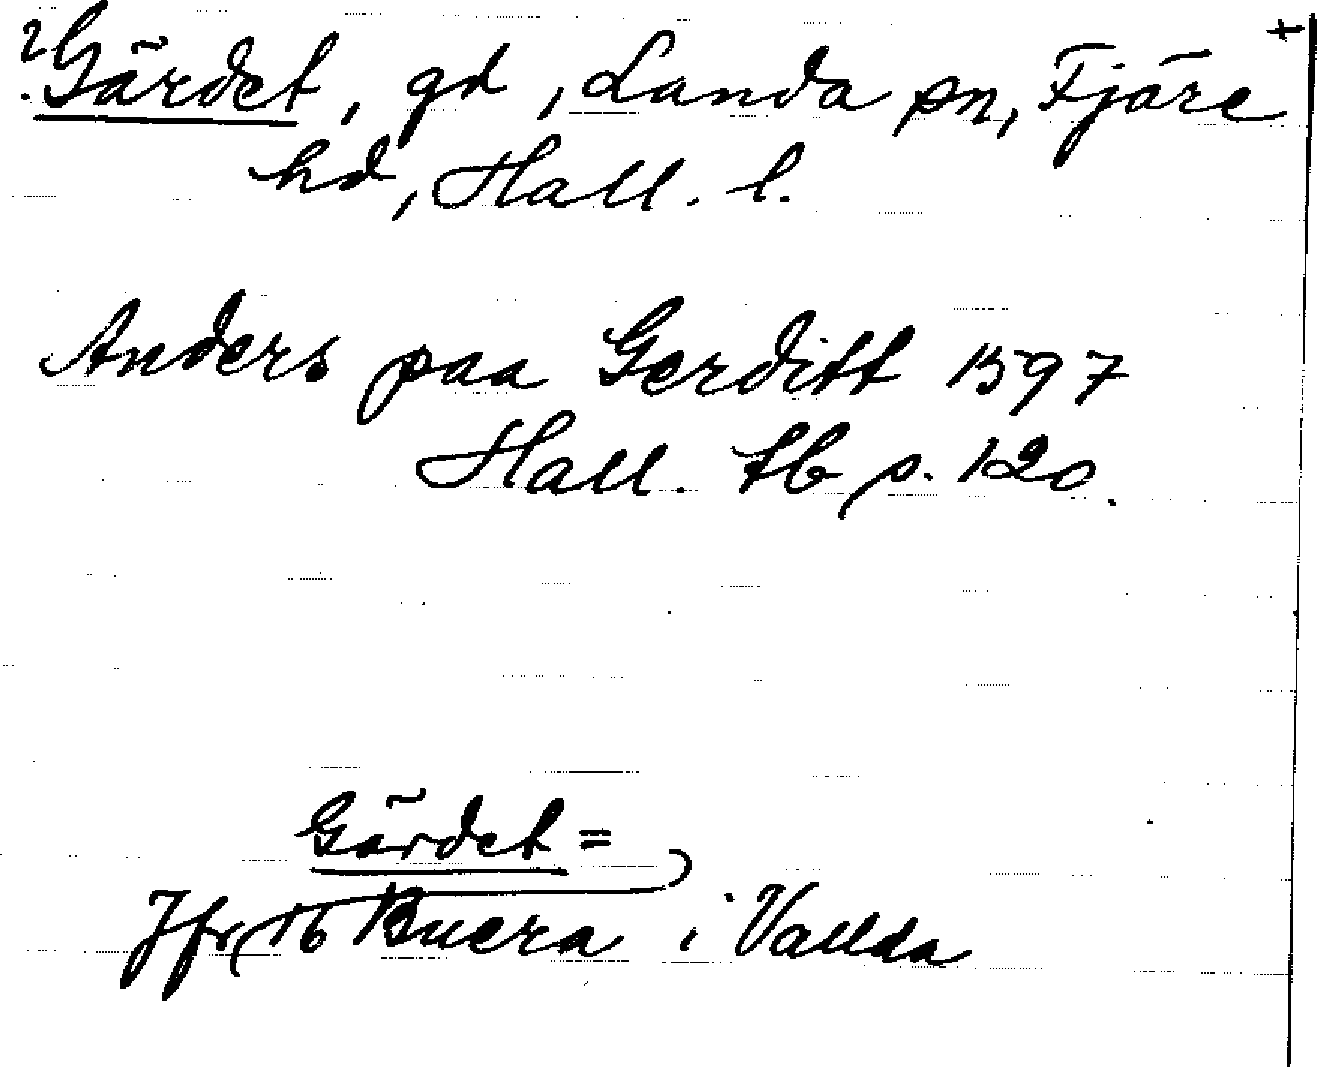 ? Gärdet, gd, Landa sn, Fjäre +
hd, Hall. l.
Anders paa Gerditt 1597
Hall. tb s. 120.
Gärdet =
Jfr (16 Buera i Vallda